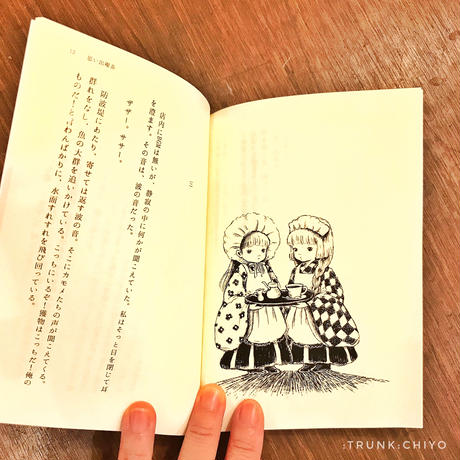 12 思い出喫茶
店内にBGMは無いが、静寂の中に何かが聞こえていた。私はそっと目を閉じて耳
を澄ます。その音は、波の音だった。
ササー。ササー。
防波堤にあたり、寄せては返す波の音。そこにカモメたちの声が聞こえてくる。
群れをなし、魚の大群を追いかけている。こっちにいるぞ!獲物はこっちだ!俺の
ものだ!と言わんばかりに、水面すれすれを飛び回っている。
:TRUNK:CHIYO